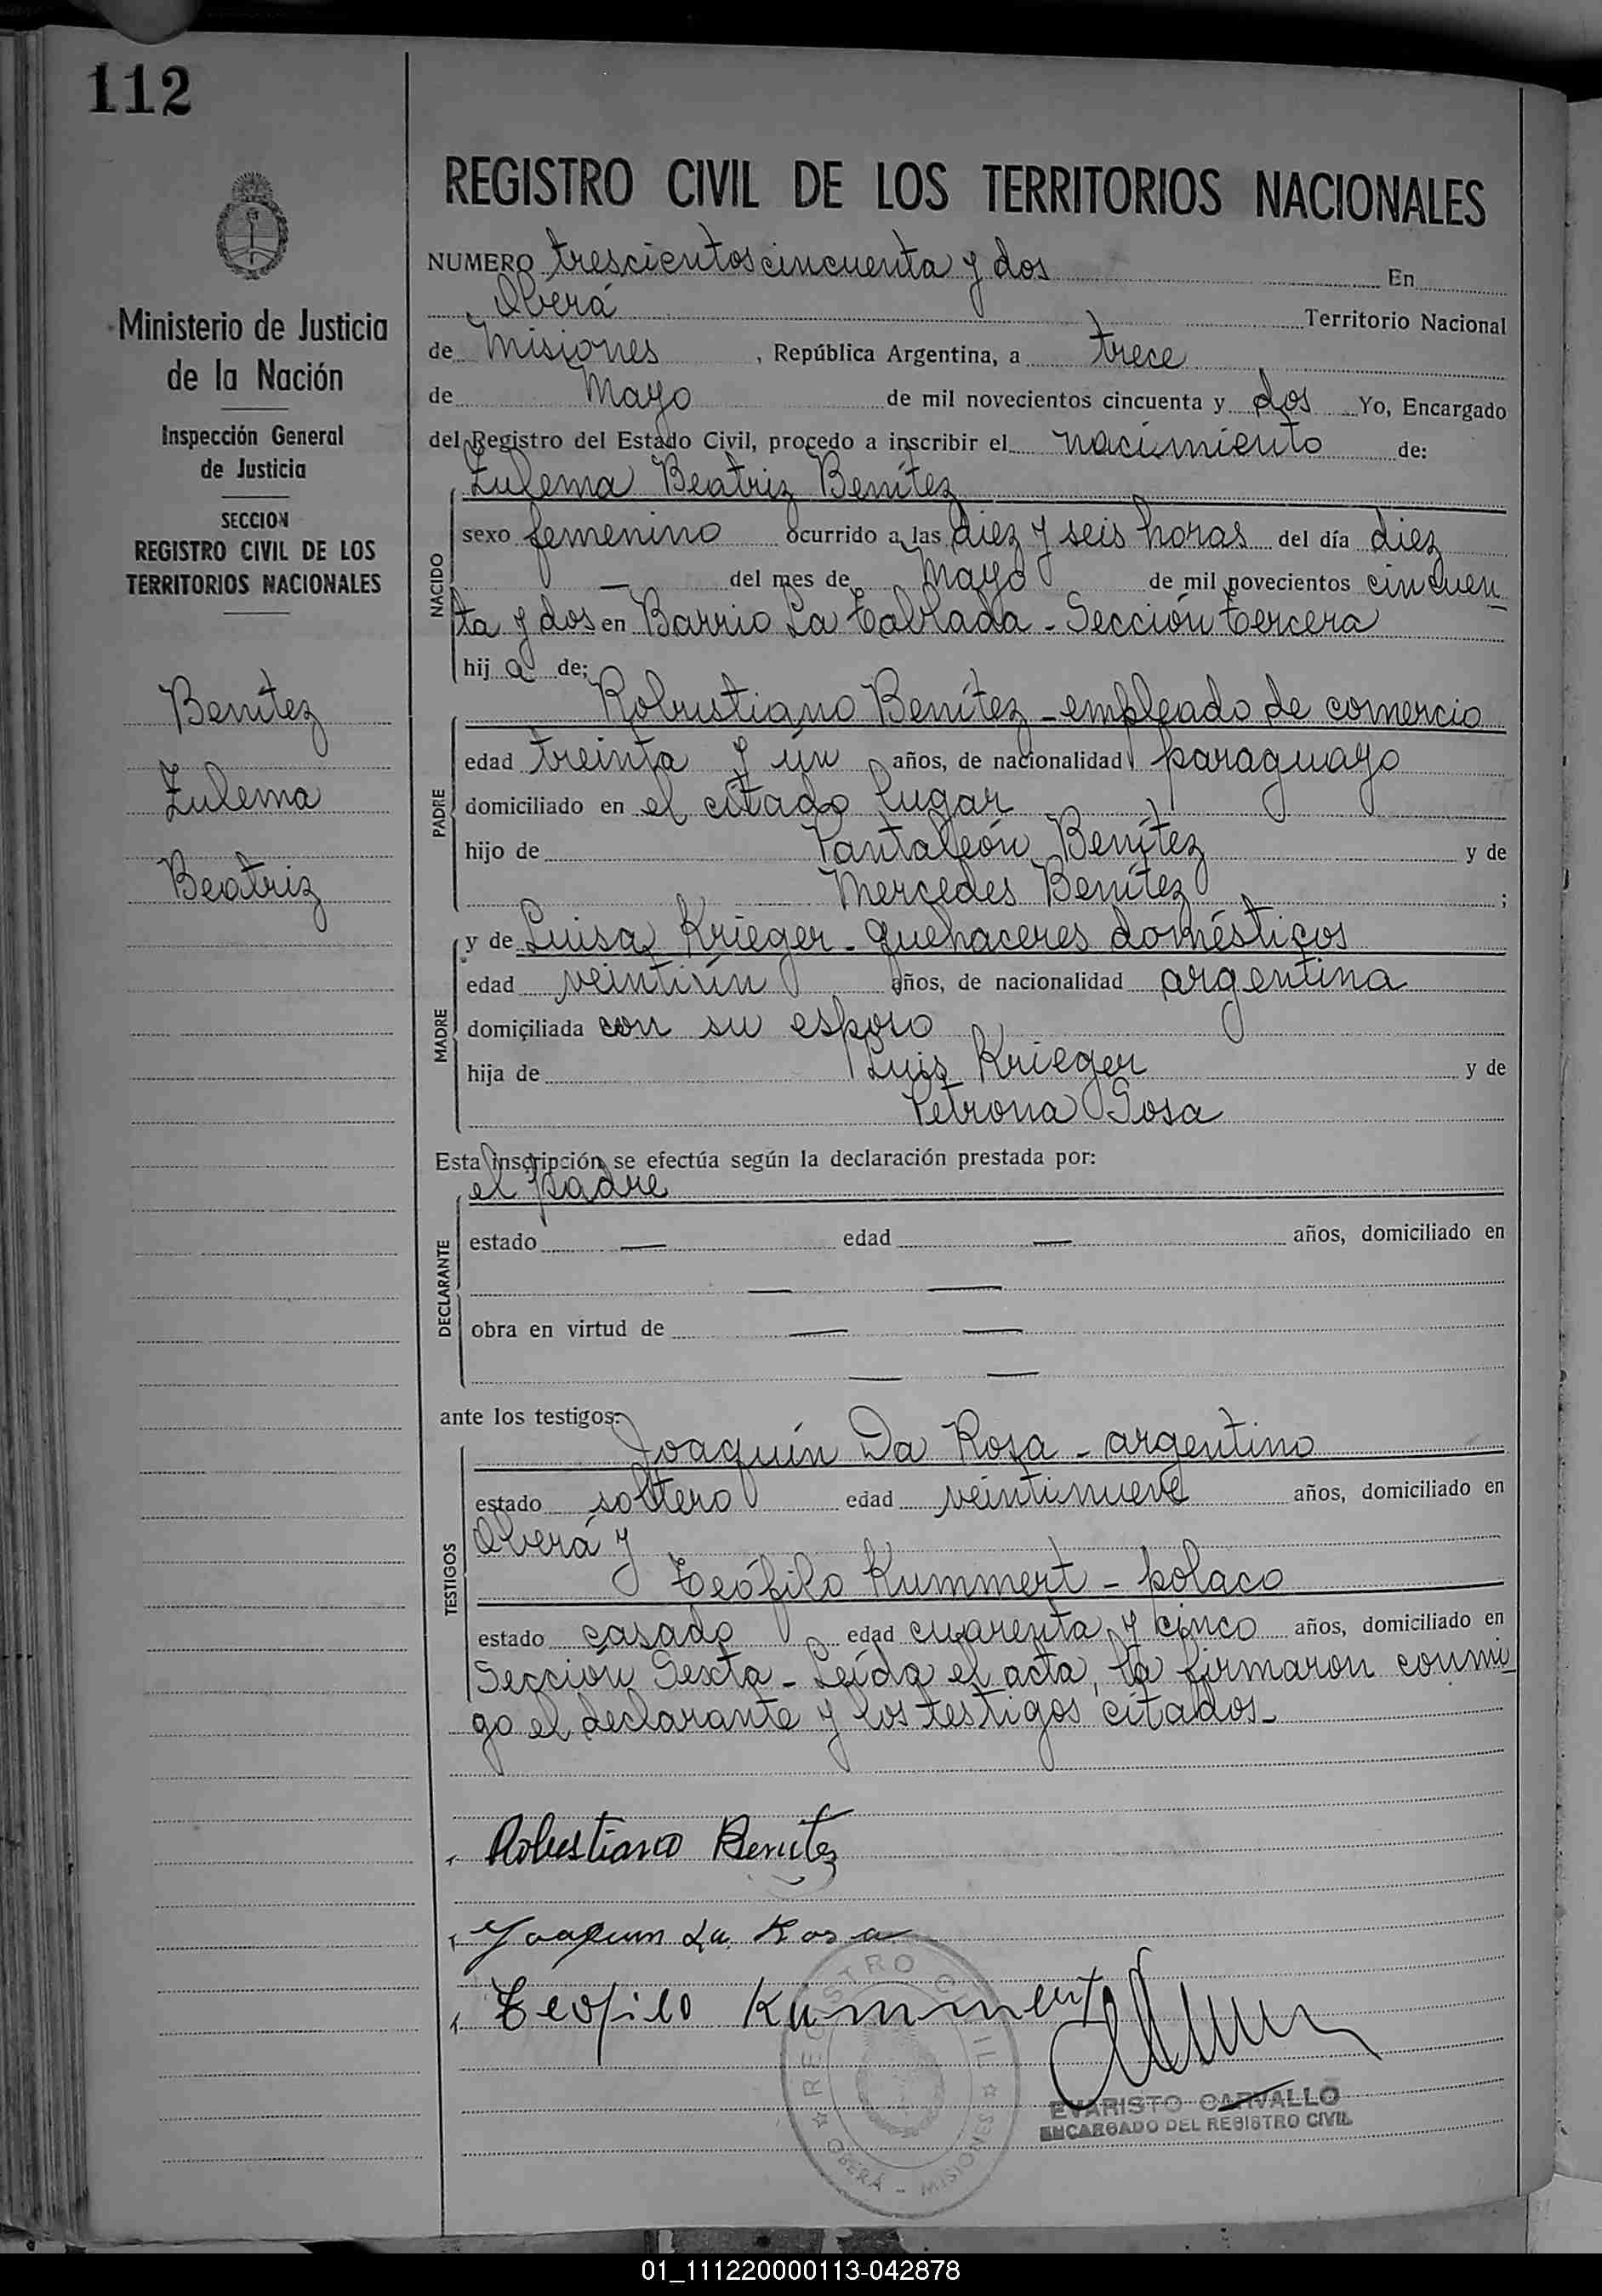 112
REGISTRO CIVIL DE LOS TERRITORIOS NACIONALES
NUMERO trescientos cincuenta y dos En
Oberá Territorio Nacional
de Misiones, República Argentina, a trece
de Mayo de mil novecientos cincuenta y dos Yo, Encargado
del Registro del Estado Civil, procedo a inscribir el nacimiento de:
Zulema Beatriz Benítez
NACIDO
sexo femenino ocurrido a las diez y seis horas del día diez
— del mes de Mayo de mil novecientos cincuen
ta y dos en Barrio La Tablada - Sección tercera
hija de;
Robustiano Benítez - empleado de comercio
PADRE
edad treinta y ún años, de nacionalidad paraguayo
domiciliado en el citado lugar
hijo de Pantaleón Benítez y de
Mercedes Benítez ;
y de Luisa Krieger - quehaceres domésticos
MADRE
edad veintiún años, de nacionalidad argentina
domiciliada con su esposo
hija de Luis Krieger y de
Petrona Sosa
Esta inscripción se efectúa según la declaración prestada por:
el padre
DECLARANTE
estado — edad — años, domiciliado en
— —
obra en virtud de — —
— —
ante los testigos:
Joaquín Da Rosa - argentino
TESTIGOS
estado soltero edad veintinueve años, domiciliado en
Oberá y
Teófilo Kummert - polaco
estado casado edad cuarenta y cinco años, domiciliado en
Sección Sexta - Leída el acta, la firmaron conmi
go el declarante y los testigos citados.-
Robustiano Benitez
Joaquin Da Rosa
Teofilo Kummert
REGISTRO CIVIL
OBERÁ - MISIONES
EVARISTO CARVALLO
ENCARGADO DEL REGISTRO CIVIL
Ministerio de Justicia
de la Nación
Inspección General
de Justicia
SECCION
REGISTRO CIVIL DE LOS
TERRITORIOS NACIONALES
Benítez
Zulema
Beatriz
01_111220000113-042878